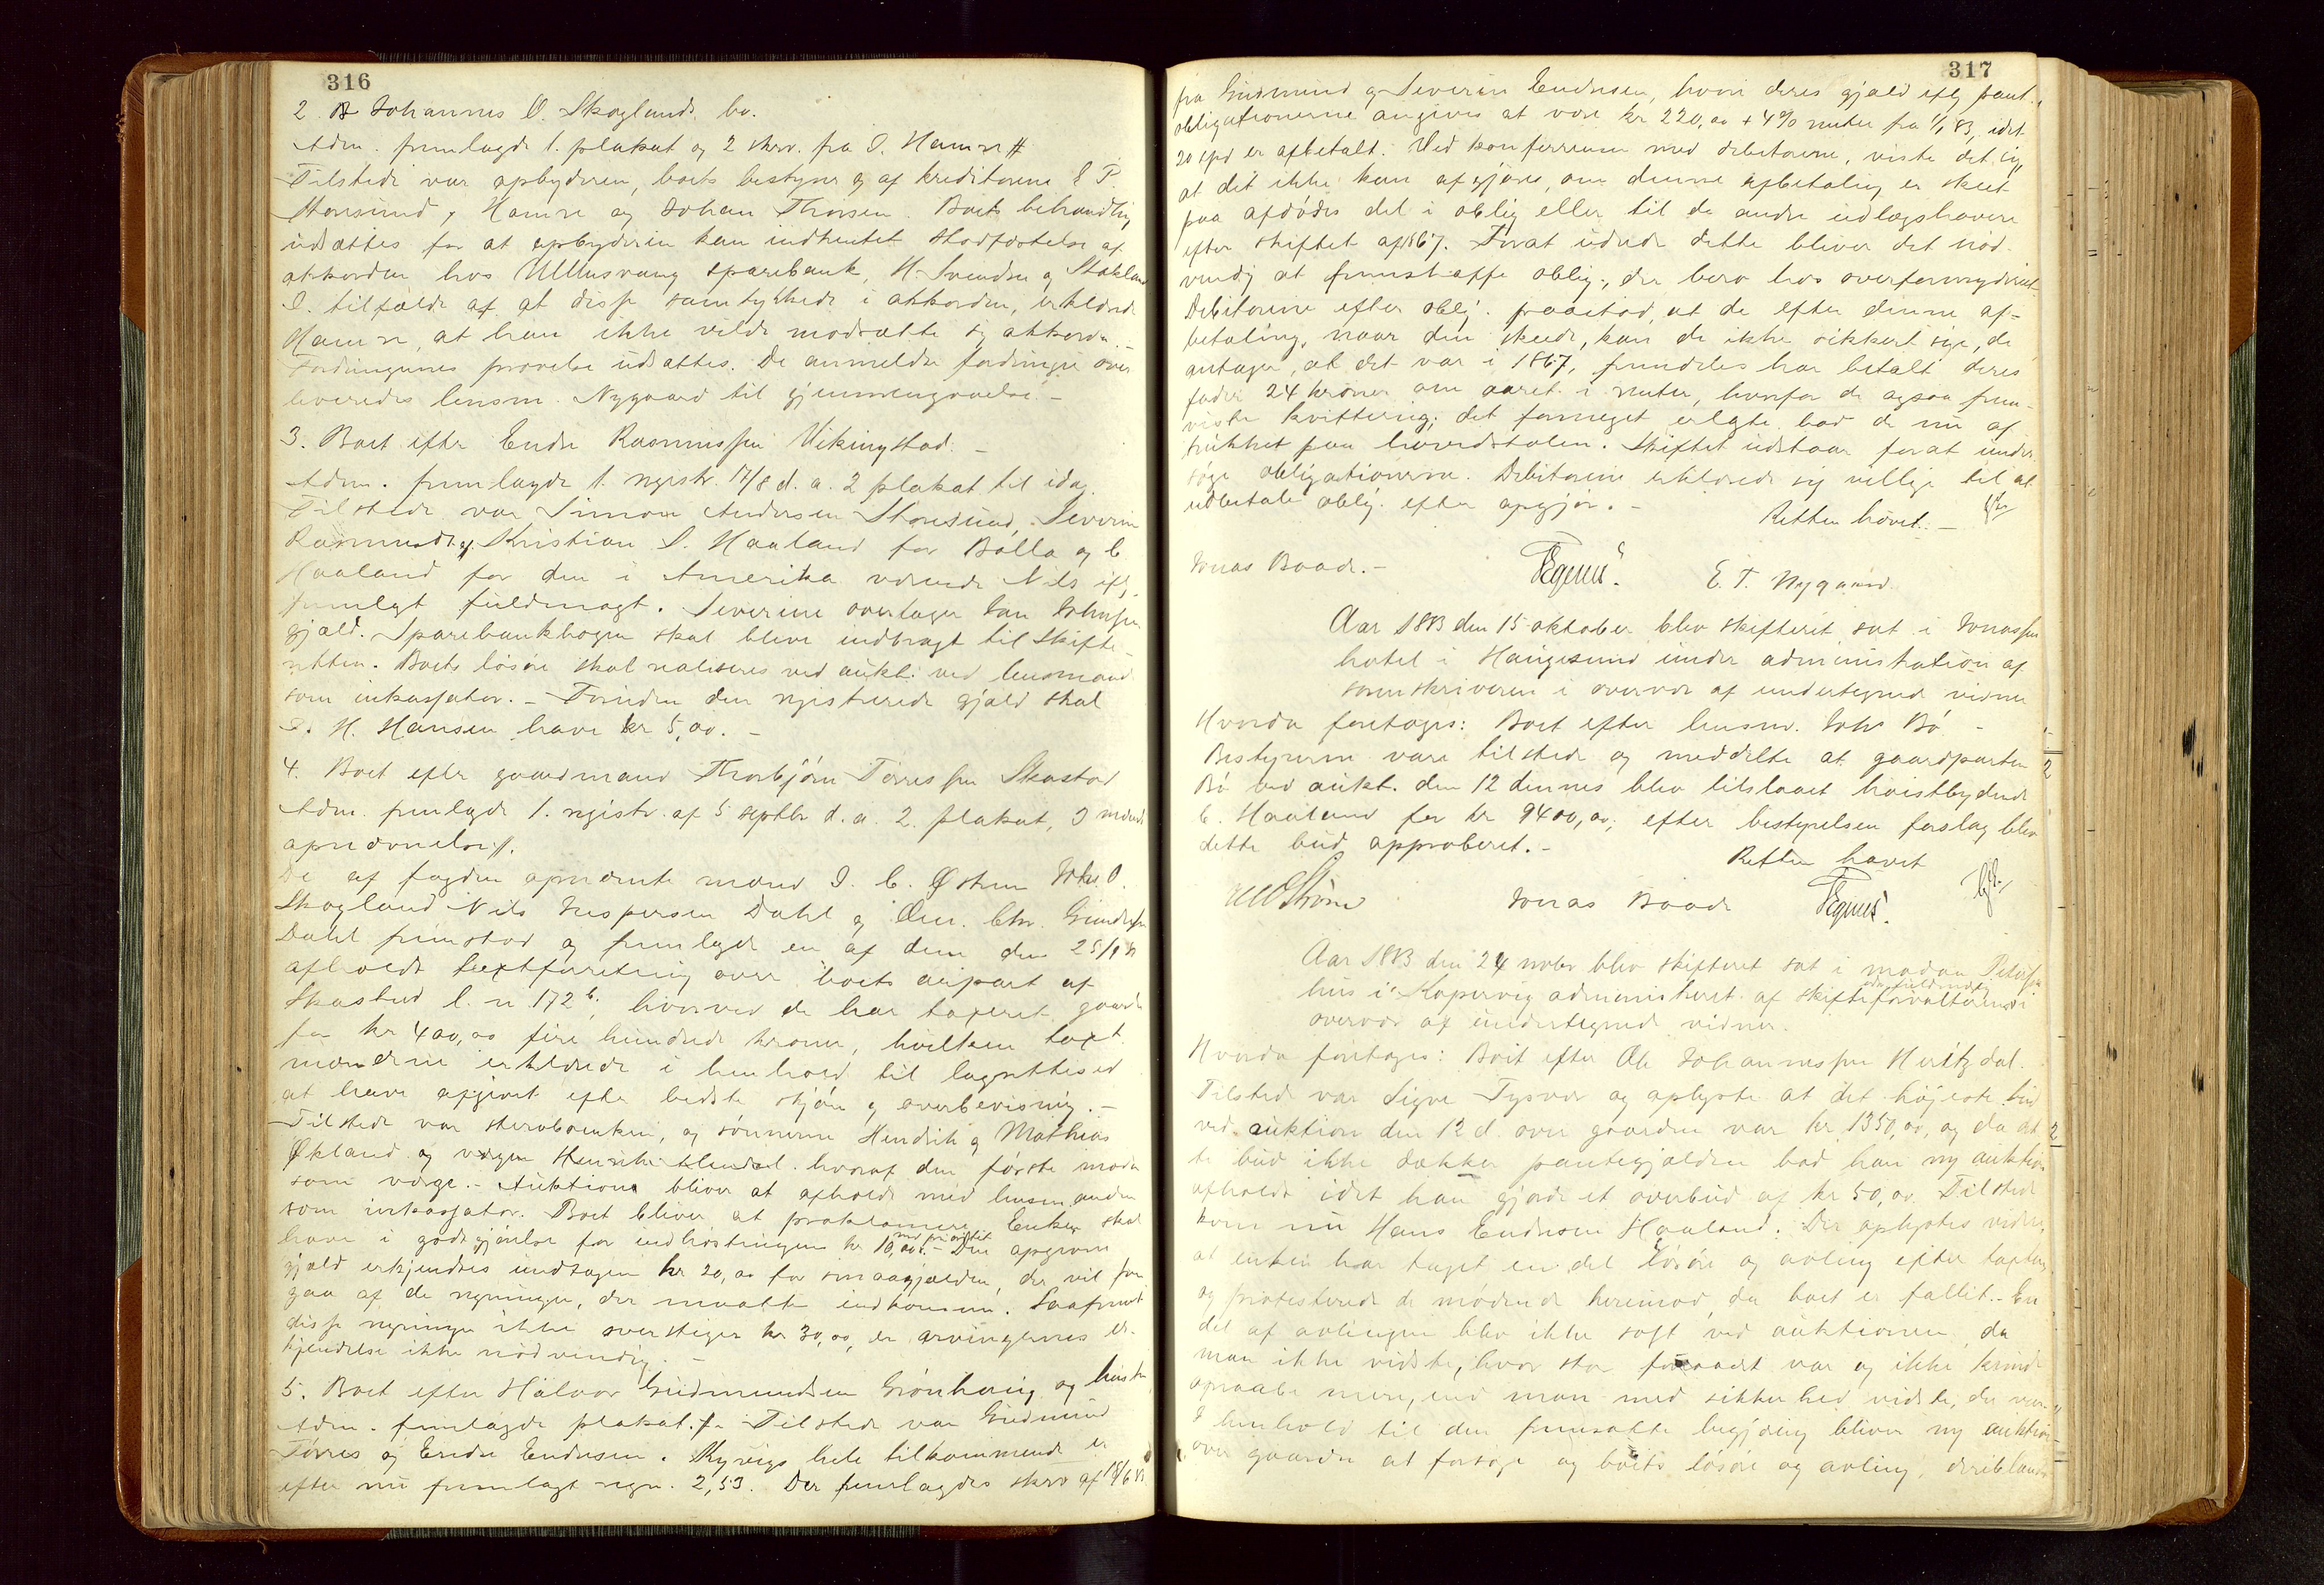 316
2. Johannes O. Skoglands bo.
Adm. fremlagde 1. plakat og 2 skrv. fra O. Hamre #
Tilstede var opbyderen, boets bestyrer og af kreditorerne E P.
Storesund, Hamre og Johan Thorsen. Boets behandling
udsættes for at opbyderen kan indhentet stadfæstelse af
akkorden hos Ullensvang sparebank, H. Svendsen og Stokland
I tilfælde af at disse samtykkede i akkorden, erklærede
Hamre, at han ikke vilde modsætte sig akkorden. –
Fordringernes prøvelse udsættes. De anmeldte fordringer over
leveredes lensm. Nygaard til gjennemgaaelse. –
3. Boet efter Endre Rasmussen Vikingstad. –
Adm. fremlagde 1. registr. 17/8 d. a. 2 plakat til idag.
Tilstede var Simon Andersen Storesund, Severin
Rasmusdt. og Kristian S. Haaland for Bolla og C.
Haaland for den i Amerika værende Nils iflg.
fremlagt fuldmagt. Severine overtager Johnsen
gjæld. Sparebankbogen skal bleve indbragt til Skifte-
retten. Boets løsøre skal realiseres ved aukt. ved lensmand
som inkassator. – Foruden den registrerede gjæld skal
H. Hansen have kr 5,00. –
4. Boet efter gaardmand Thorbjørn Tørressen Skastad
Adm. fremlagde 1. registr. af 5 septbr d. a. 2. plakat, 3 mænds
opnævnelse #.
De af fogden opnævnte mænd I. C. Østrem Johs. O.
Skogland Nils Jespersen Dahl og Chr. Gundersen
Dahl fremstod og fremlagde en af dem den 25/9 83
afholdt taxtforretning over boets anpart af
Skastad l. n. 172 b, hvorved de har taxeret gaarden
for kr 400,00 fire hundrede kroner, hvilken taxt
mændene erklærede i henhold til lagrettesed
at have afgivet efter bedste skjøn og overbevisning. –
Tilstede var stervboenken, og sønnerne Hendrik og Mathias
Økland og værgen hvoraf den første møder
som værge. – Auktion bliver at afholde med lensmanden
som inkassator. Boet bliver at proklamere. Enken skal
have i godtgjørelse for indhøstningen kr 10,00 med prioritet. – Den opgivne
gjæld erkjendtes undtagen kr 20,00 for smaagjælden, der vil frem
gaa af de regninger, der maatte indkomme. Saafremt
disse regninger ikke overstiger kr 30,00, er arvingernes er-
kjendelse ikke nødvendig. –
5. Boet efter Halvor Gudmundsen Grønhaug og hustru
Adm. fremlagde plakat. Tilstede var Gudmund
Tørres og Endre Endresen. Ryvigs hele tilkommende er
efter nu fremlagt regn. 2,53. Der fremlagdes skrv af 18/6 83
317
fra Gudmund og Severin Endresen, hvori deres gjæld eflg pant-
obligationerne angives at være kr 220,00 + 4% renter fra 1/1 83, idet
20 spd er afbetalt. Ved konferrence med debitorerne, viste det sig
at det ikke kan afgjøres, om denne afbetaling er skeet
paa afdødes del i oblig eller til de andre udlægshavere
efter skiftet af 1867. Forat udrede dette bliver det nød-
vendig at fremskaffe oblig., der bero hos overformynderiet
Debitorerne efter oblg. paastod, at de efter denne af-
betaling, naar den skeede, kan de ikke sikkert sige, de
antager, at det var i 1867, fremdeles har betalt deres
fader 24 kroner om aaret i renter, hvorfor de ogsaa frem-
viste kvittering; det formeget erlagte bad de nu af
trukket paa hovedstolen. Skiftet udstaar forat under-
søge obligationerne. Debitorerne erklærede sig villige til at
udbetale oblg. efter opgjør. –
Retten hævet. –
Jonas Baade. –
E. T. Nygaard
Aar 1883 den 15 oktober blev skifteret sat i Jonassen
hotel i Haugesund under administration af
sorenskriveren i overvær af undertegnede vidner
Hvorda foretages: Boet efter lensm. Bø –
Bestyreren vare tilstede og meddelte at gaardparten
Bø ved aukt. den 12 dennes blev tilslaaet høistbydende
C. Haaland for kr 9400,00; efter bestyrelsens forslag blev
dette bud approberet. –
Retten hævet
Strøm Jonas Baade
Aar 1883 den 24 novbr blev skifteret sat i madam Petersens
hus i Kopervig administreret af skifteforvalteren i
overvær af undertegnede vidner.
Hvorda foretages: Boet efter Ole Johannessen Heritzdal.
Tilstede var Sigve Tysvær og oplyste at det højeste bud
ved auktion den 12 d. over gaarden var kr 1350,00, og da det
te bud ikke dækker pantegjælden bad han ny auktion
afholdt idet han gjorde et overbud af kr 50,00. Tilstede
kom nu Hans Endresen Haaland. Der oplystes videre,
at enken har taget en del løsøre og avling efter taxten
og protesterede de mødende herimod, da boet er fallit. – En
del af avlingen blev ikke solgt ved auktionen, da
man ikke vidste, hvor stor forraadet var og ikke kunde
opraabe mere, end man med sikkerhed vidste, der var.
I henhold til den fremsatte begjæring bliver ny auktion
over gaarden at forsøge og boets løsøre og avling, deriblandt